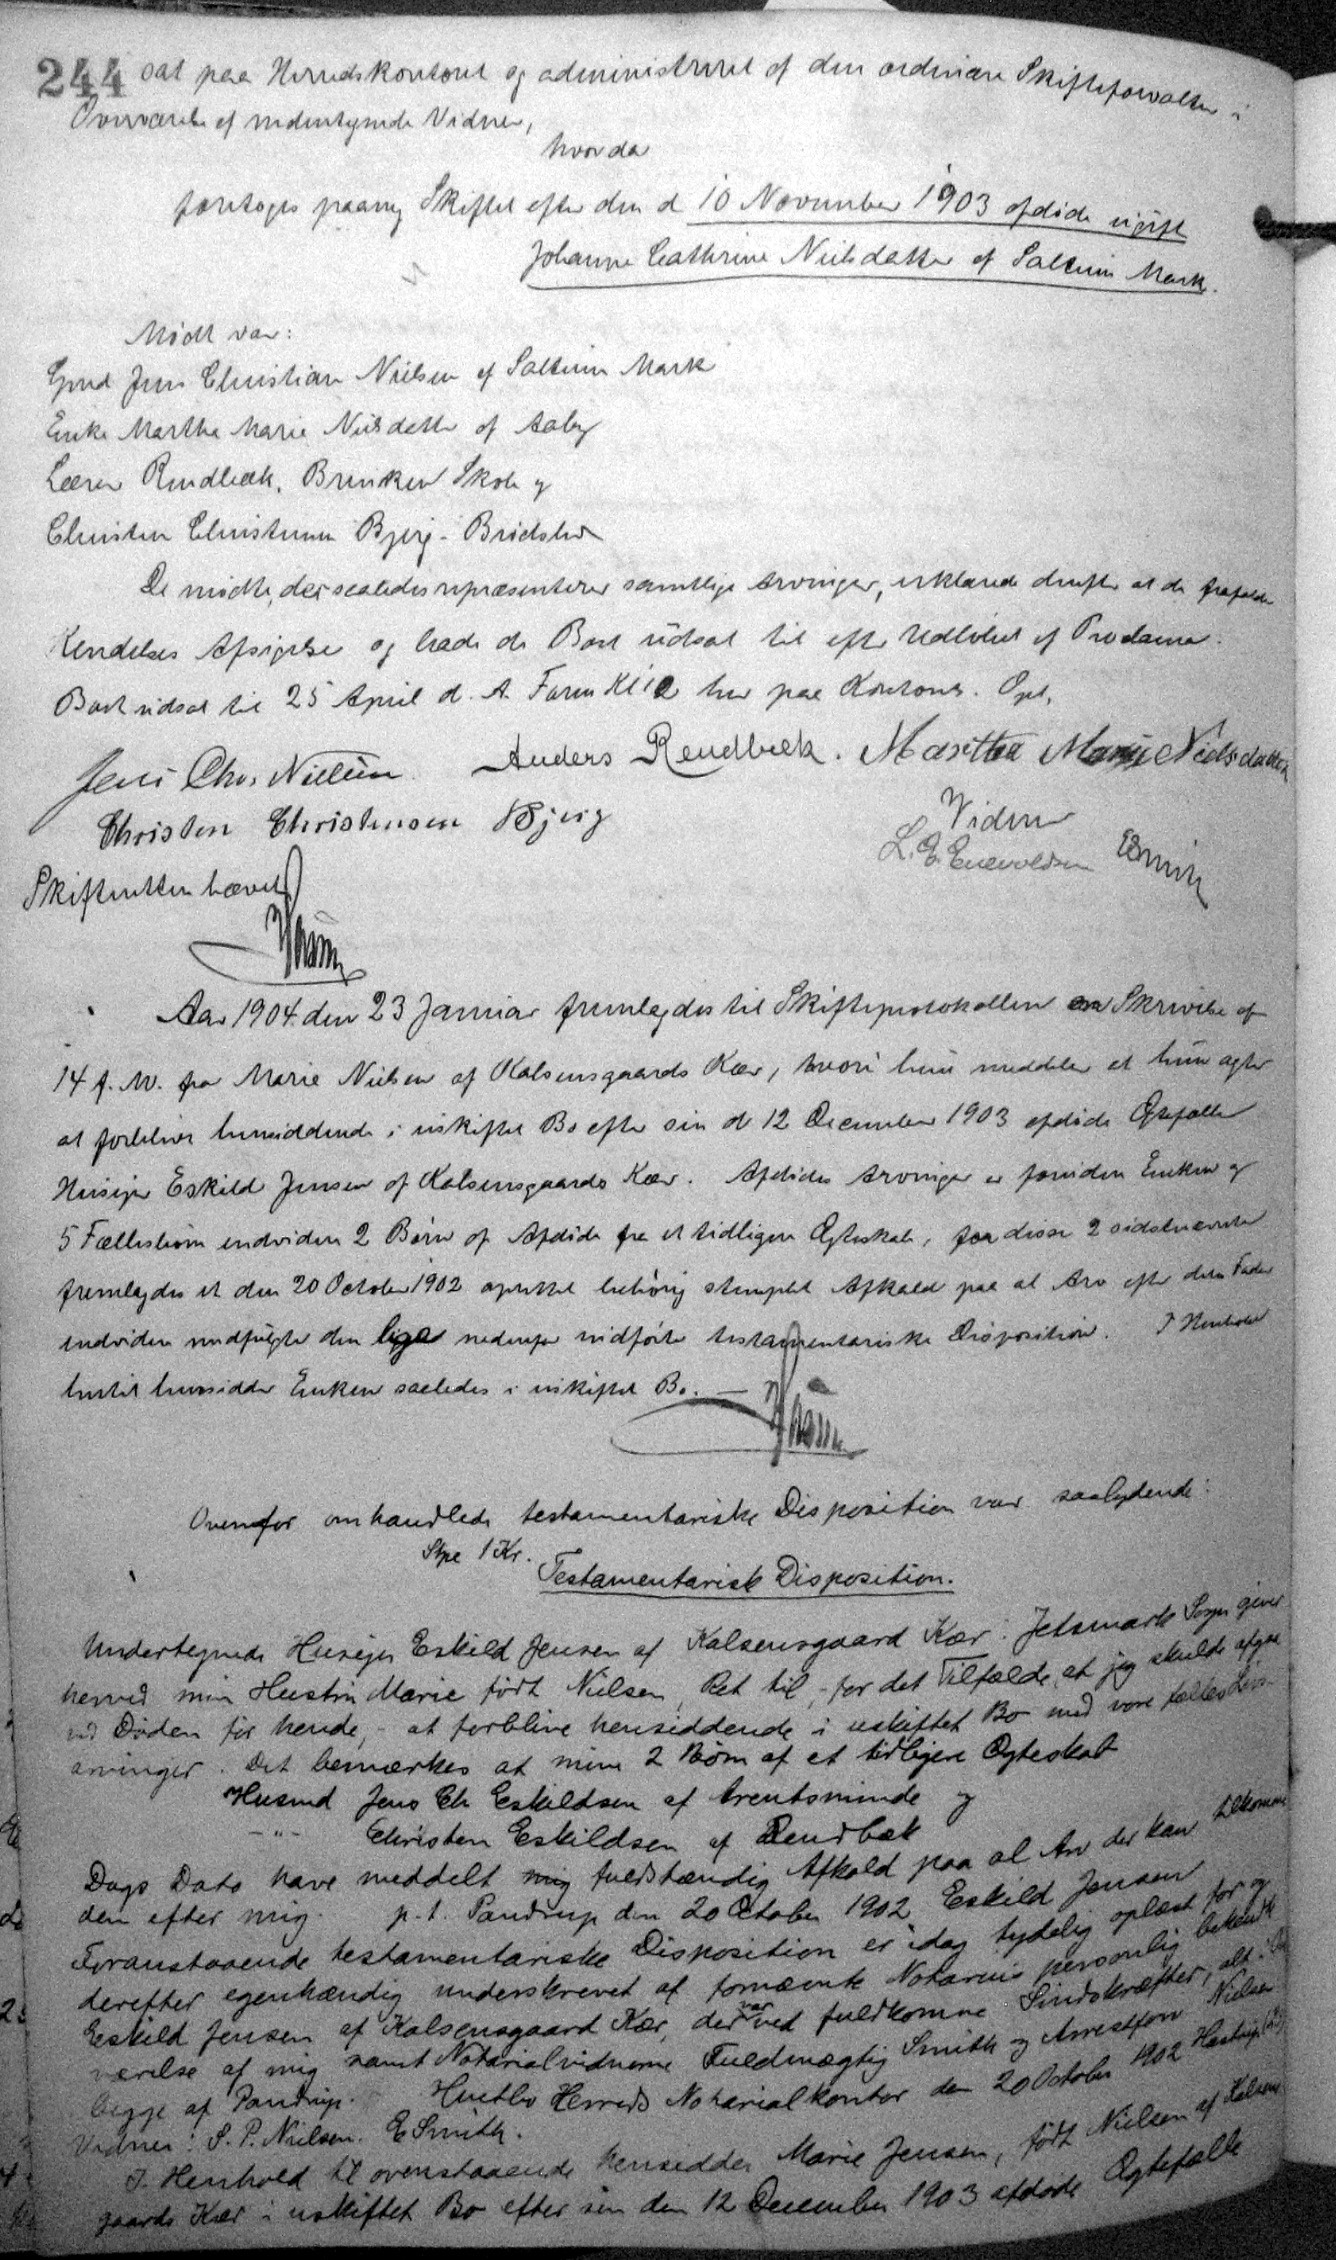 244 sat paa Herredskontoret og administreret af den ordinære Skifteforvalter i
Overværelse af undertegnede Vidner,
hvorda
foretoges paany Skiftet efter den d 10 November 1903 afdøde ugift
Johanne Cathrine Nielsdatter af Saltum Mark.
Mødt var:
Gmd Jens Christian Nielsen af Saltum Mark
Enke Martha Marie Nielsdatter af Aaby
Lærer Rendbæk, Skole og
Christen Christensen Bjerg - Brødslev
De mødte, der saaledes repræsenterer samtlige Arvinger, erklærede derefter at de frafalde
Kendelses Afsigelse og bade de Boet udsat til efter Udløbet af Proclama.
Boet udsat til 25 April d. A. Form Kl 12 her paa Kontoret. Opl.
Jens Chr. Nielsen Anders Rendbæk. Martha Marie Nielsdatter
Christen Christensen Bjerg Vidner
L. E. Enevoldsen ESmith
Skifteretten hævet
Aar 1904 den 23 Januar fremlagdes til Skifteprotokollen en Skrivelse af
14 f. M. fra Marie Nielsen af Kalsensgaards Kær, hvori hun meddeler at hun agter
at forblive hensiddende i uskiftet Bo efter sin d 12 December 1903 afdøde Ægtefælle
Husejer Eskild Jensen af Kalsensgaards Kær. Afdødes Arvinger er foruden Enken og
5 Fællesbørn endvidere 2 Børn af Afdøde fra et tidligere Ægteskab, fra disse 2 sidstnævnte
fremlagdes et den 20 October 1902 oprettet behørig stemplet Afkald paa al Arv efter deres Fader
endvidere medfulgte den lige nedenfor indførte testamentariske Disposition. I Henhold
hertil hensidder Enken saaledes i uskiftet Bo. —
Ovenfor omhandlede testamentariske Disposition var saalydende:
Stpe 1 Kr.
Testamentarisk Disposition.
Undertegnede Husejer Eskild Jensen af Kalsensgaard Kær i Jetsmark Sogn giver
herved min Hustru Marie født Nielsen, Ret til, - for det Tilfælde, at jeg skulde afgaa
ved Døden før hende, - at forblive hensiddende i uskiftet Bo med vore fælles Livs-
arvinger. Det bemærkes at mine 2 Børn af et tidligere Ægteskab
Husmd Jens Chr Eskildsen af Arentsminde og
-"- Christen Eskildsen af Rendbæk
Dags Dato have meddelt mig fuldstændig Afkald paa al Arv der kan tilkomme
dem efter mig. p. t. Pandrup den 20 October 1902 Eskild Jensen
Foranstaaende testamentariske Disposition er idag tydelig oplæst for og
derefter egenhændig underskrevet af fornævnte Notarius personlig bekendte
Eskild Jensen af Kalsensgaard Kær, der var ved fuldkomne Sindskræfter, alt i Over
værelse af mig samt Notarialvidnerne Fuldmægtig Smith og Arrestforv Nielsen
begge af Pandrup. Hvetbo Herreds Notarialkontor den 20 October 1902
Vidner: S. P. Nielsen. ESmith.
I Henhold til ovenstaaende hensidder Marie Jensen, født Nielsen af Kalsens
gaards Kær i uskiftet Bo efter sin den 12 December 1903 afdøde Ægtefælle